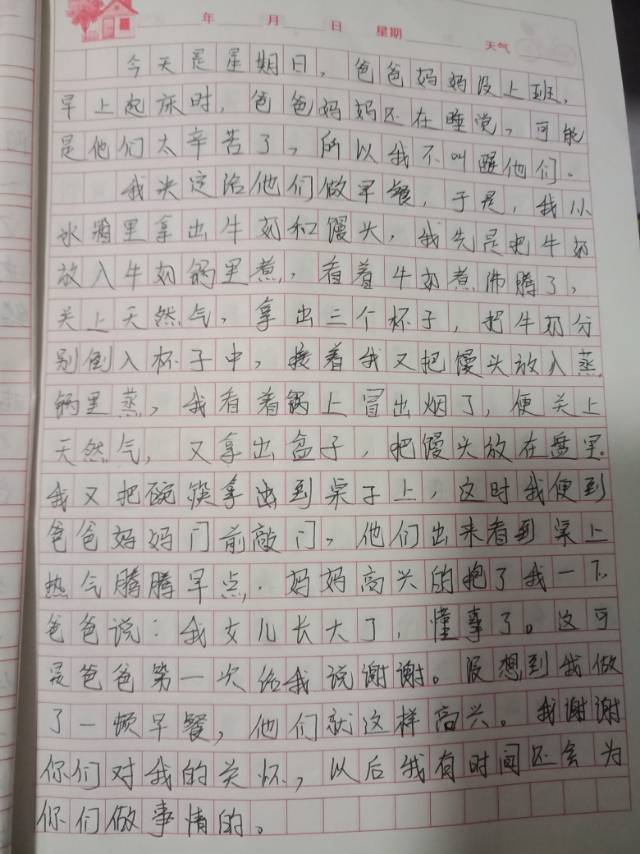 年 月 日 星期 天气
今天是星期日，爸爸妈妈没上班，
早上起床时，爸爸妈妈还在睡觉，可能
是他们太辛苦了，所以我不叫醒他们。
我决定给他们做早餐，于是，我从
冰箱里拿出牛奶和馒头，我先是把牛奶
放入牛奶锅里煮，看着牛奶煮沸腾了，
关上天然气，拿出三个杯子，把牛奶分
别倒入杯子中，接着我又把馒头放入蒸
锅里蒸，我看着锅上冒出烟了，便关上
天然气，又拿出盆子，把馒头放在盘里。
我又把碗筷拿出到桌子上，这时我便到
爸爸妈妈门前敲门，他们出来看到桌上
热气腾腾早点，妈妈高兴的抱了我一下
爸爸说：我女儿长大了，懂事了。这可
是爸爸第一次给我说谢谢。没想到我做
了一顿早餐，他们就这样高兴。我谢谢
你们对我的关怀，以后我有时间还会为
你们做事情的。